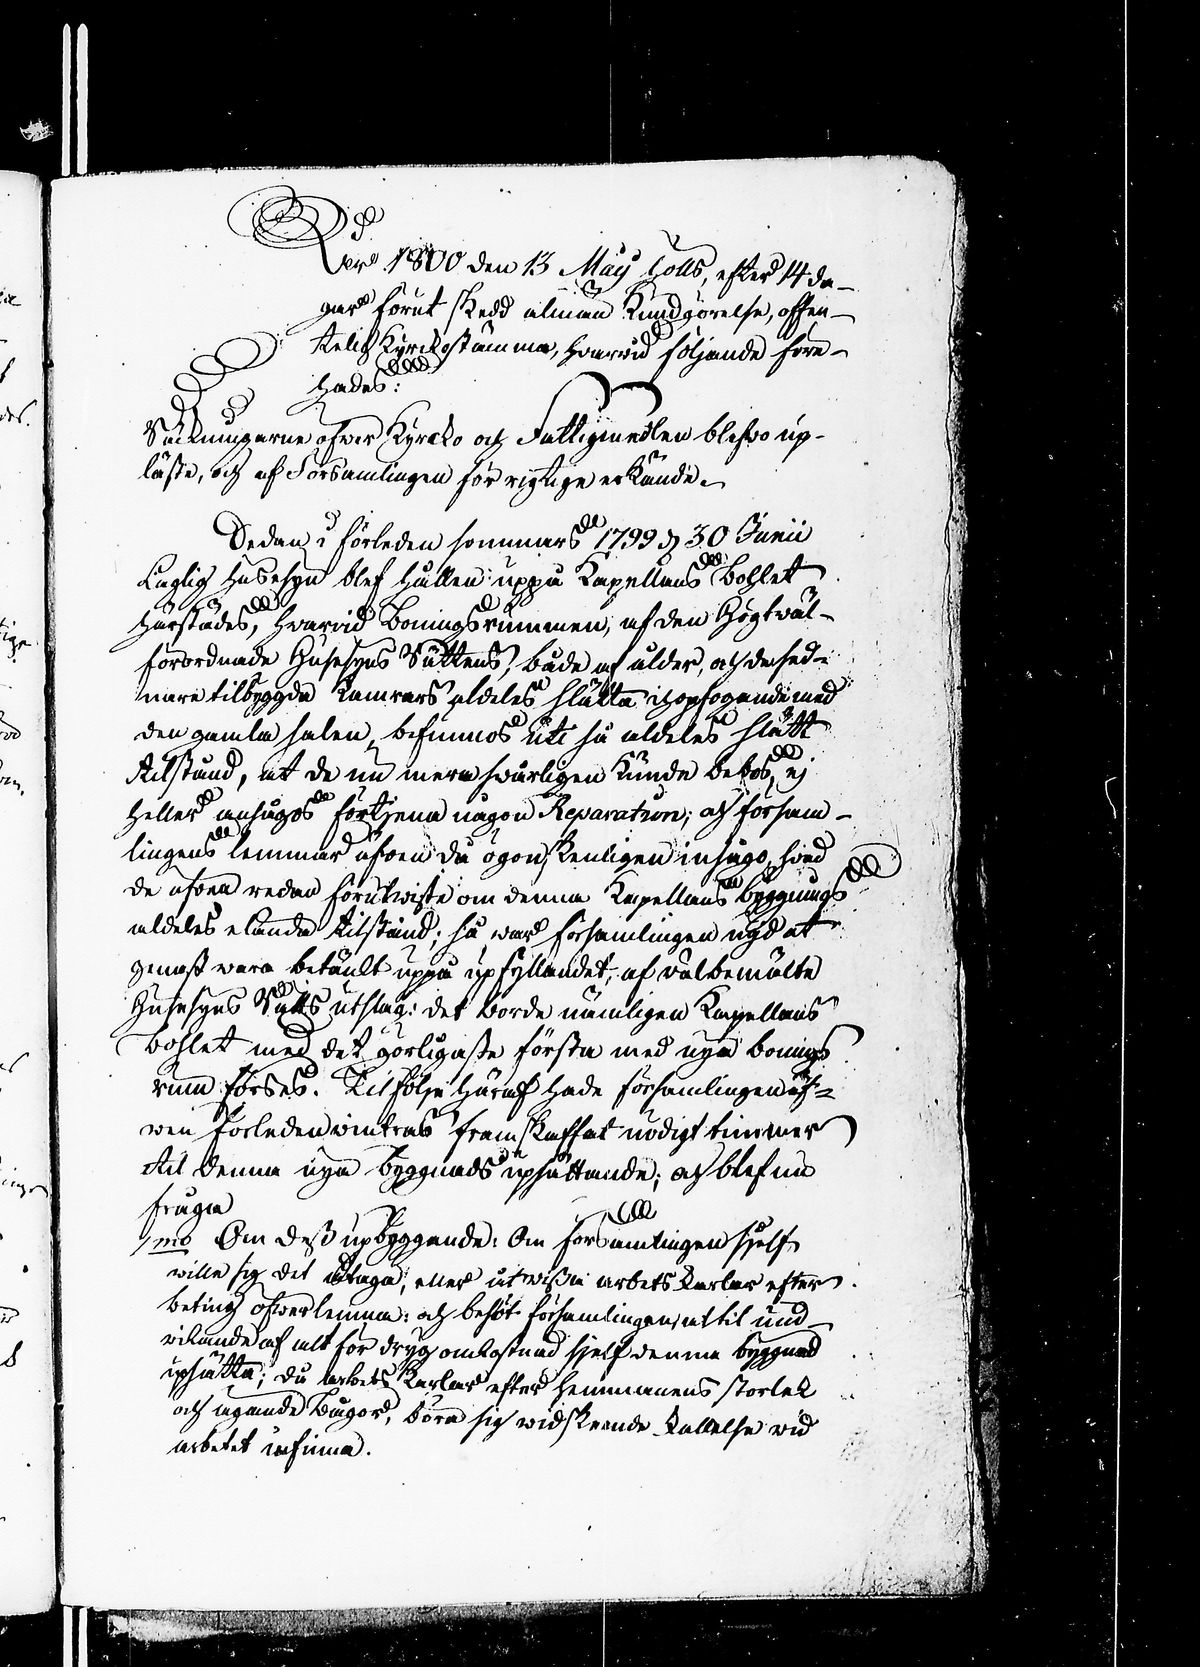 Året 1800 den 13 Maij hölls, efter 14 da-
gar förut skedd almän Kundgörelse, offen-
telig Kyrckostämma, hvarvid följande före-
hades:
Räkningarne öfver Kyrcko och Fattigmedlen blefvo up-
läste, och af Församlingen för rigtige erkände.
Sedan i förleden sommars 1799 d 30 Junii
Laglig Husesyn blef hållen uppå Kapellans Bohlet
härstädes, hvarvid Boningsrummen, af den Högtväl-
förordnade Husesyns Rättens, både af ålder, och de sed-
nare tilbyggda Kamrars aldeles slätta ihopfogande med
den gamla salen, befunnos uti så aldeles slätt
tilstånd, at de nu mera svårligen kunde bebos, ej
heller ansågos förtjena någon Reparation; och försam-
lingens lemmar äfven då ögonskenligen insågo, hvad
de äfven redan förut viste om denna Kapellans byggnings
aldeles elända tilstånd; så var församlingen nögd at
genast vara betänkt uppå upfyllandet, af välbemälte
Husesyns Rätts utslag: det borde nämligen Kapellans
bohlet med det görligaste första med nya bonings
rum förses. Til följe häraf hade församlingen äf-
wen förleden vintras framskaffat nödigt timmer
til denna nya byggnads upsättande; och blef nu
fråga
1mo Om dess upbyggande: Om församlingen sjelf
wille sig det åtaga, eller åt vissa arbetskarlar efter
beting öfverlemna: och beslöt församlingen, at til und-
vikande af alt för dryg omkostnad sjelf denna byggnad
upsätta; då arbets Karlar efter hemmanens storlek
och ägande Bågor, böra sig vid skeende kallelse vid
arbetet infinna.